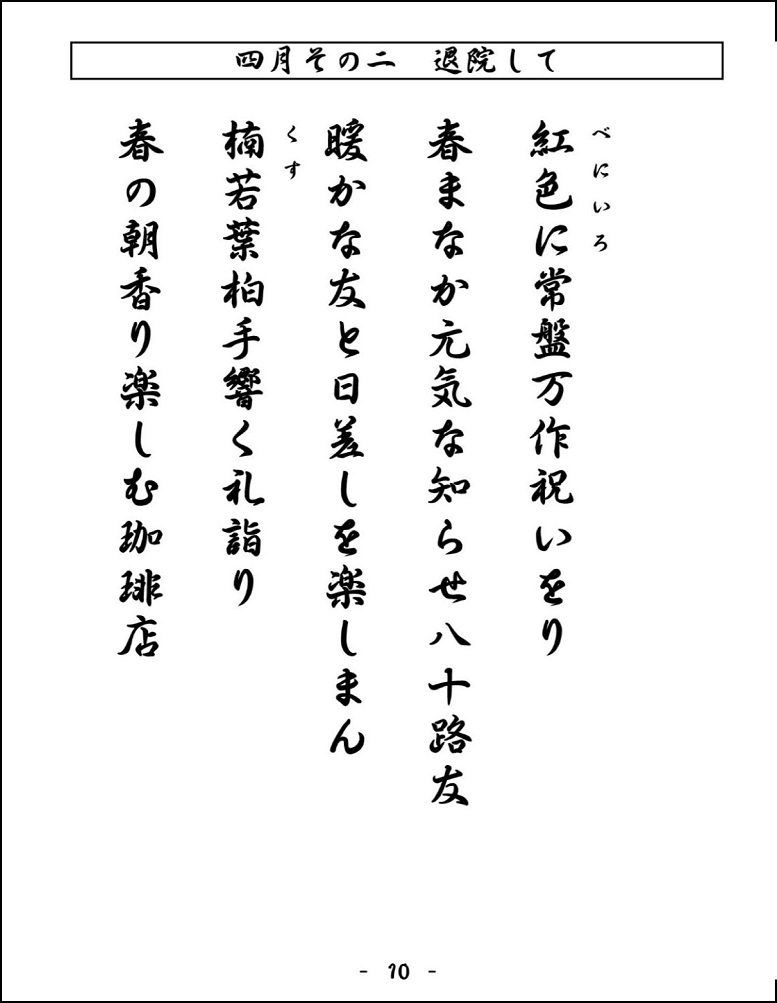 四月その二　退院して
べにいろ
紅色に常盤万作祝いをり
春まなか元気な知らせ八十路友
暖かな友と日差しを楽しまん
くす
楠若葉柏手響く礼詣り
春の朝香り楽しむ珈琲店
- 10 -